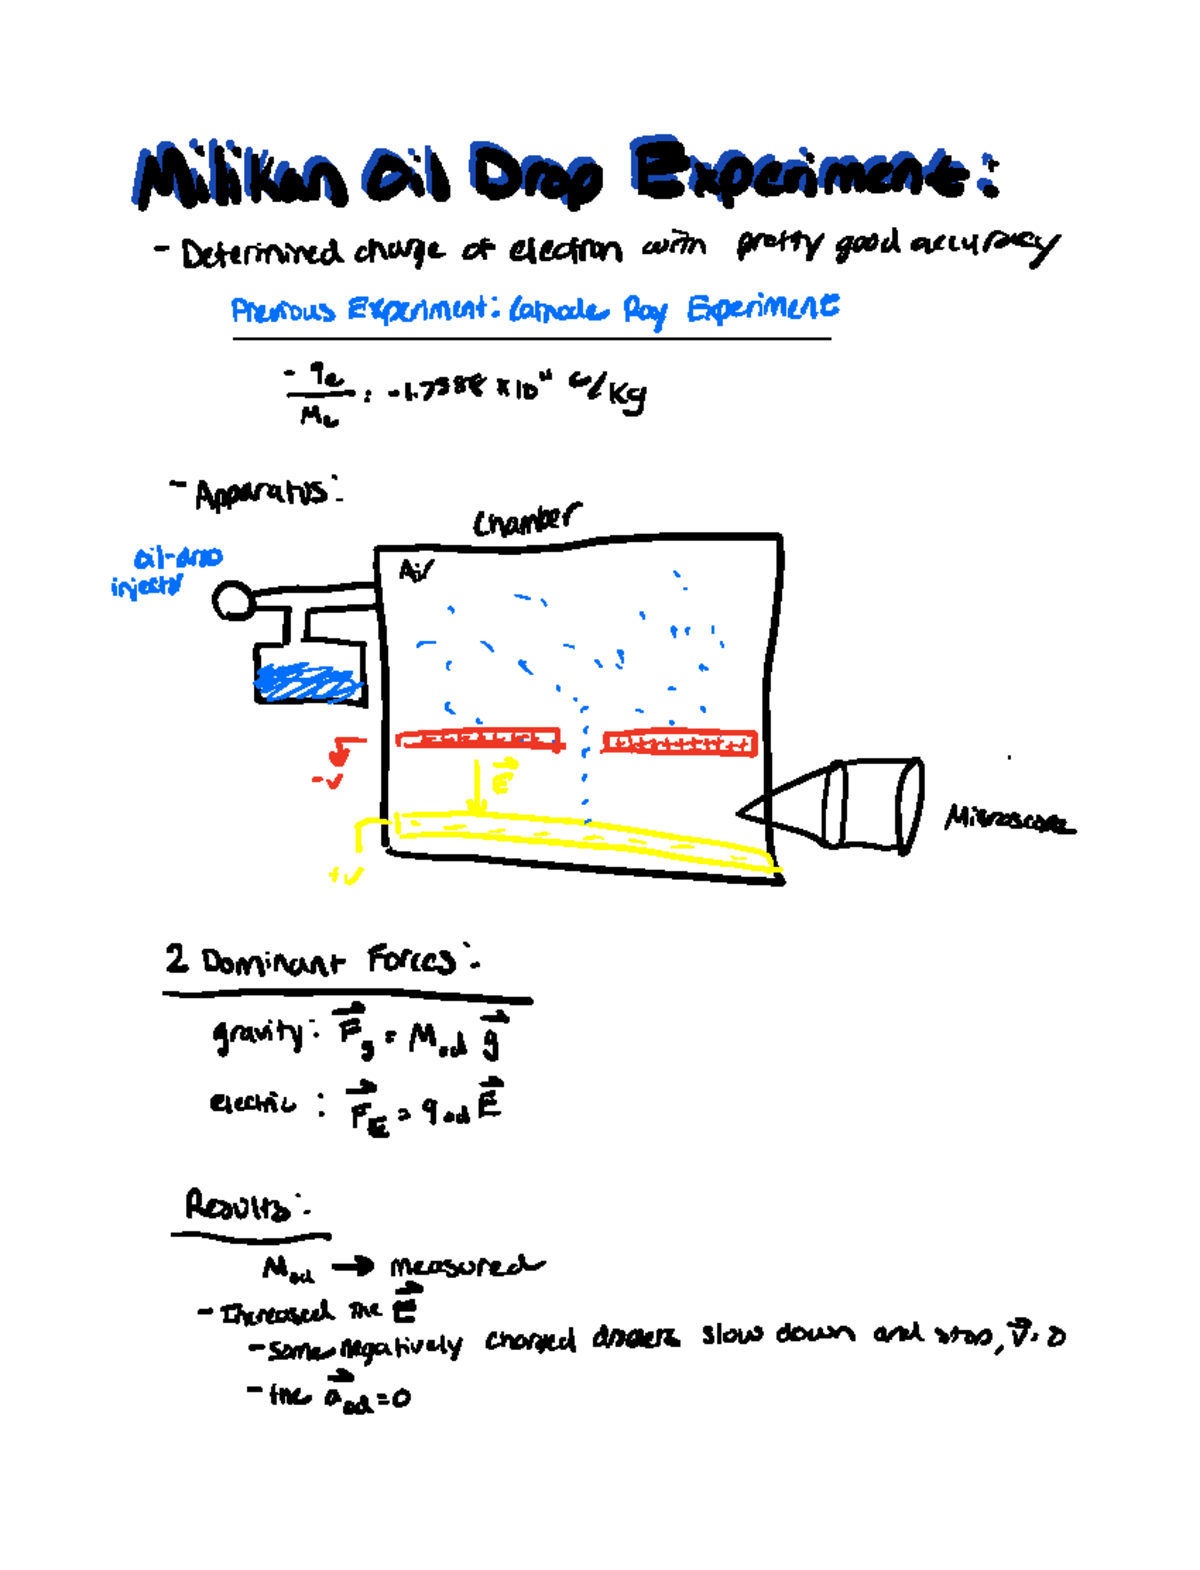 Millikan Oil Drop Experiment:
- Determined charge of electron with pretty good accuracy
Previous Experiment: Cathode Ray Experiment
- qe / Me = -1.7588 × 10¹¹ C/Kg
- Apparatus:
Chamber
oil-drop
injector
Air
-V
E⃗
+V
Microscope
2 Dominant Forces:
gravity: F⃗g = Mod g⃗
electric: F⃗E = qod E⃗
Results:
Mod → measured
- Increased the E⃗
- Some negatively charged droplets slow down and stop, V⃗=0
- the a⃗od = 0